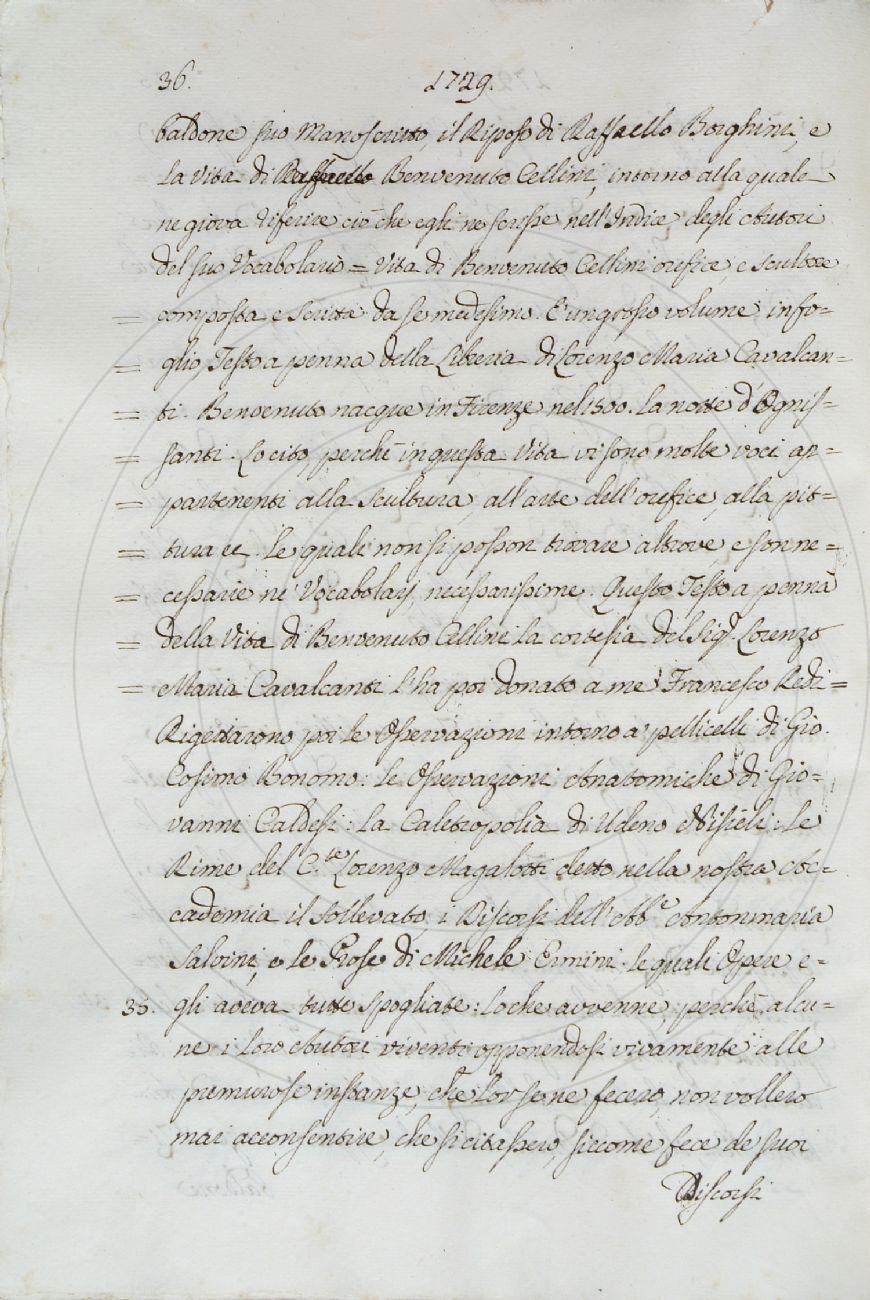 36. 1729.
baldone suo Manoscritto, il Riposo di Raffaello Borghini, e
la Vita di Raffaello Benvenuto Cellini, intorno alla quale
ne giova riferire ciò che egli ne scrisse nell'Indice degli Autori
del suo Vocabolario = Vita di Benvenuto Cellini orefice, e scultore
= composta e scritta da se medesimo. E' un grosso volume in fo=
= glio, Testo a penna della Libreria di Lorenzo Maria Cavalcan=
= ti. Benvenuto nacque in Firenze nel 1500. la notte d'Ognis=
= santi. Lo cito, perchè in questa Vita vi sono molte voci ap=
= partenenti alla scultura, all'arte dell'orefice, alla pit=
= tura ec. le quali non si posson trovare altrove, e son ne=
= cessarie ne' Vocabolarj, necessarissime. Questo Testo a penna
= della Vita di Benvenuto Cellini la cortesia del Sig.r Lorenzo
= Maria Cavalcanti l'ha poi donato a me Francesco Redi =
Rigettarono poi le Osservazioni intorno a' pellicelli di Gio.
Cosimo Bonomo: le Osservazioni Anatomiche di Gio=
vanni Caldesi: la Caletropolia di Udeno Nisieli: le
Rime del C.te Lorenzo Magalotti detto nella nostra Ac=
cademia il Sollevato, i Discorsi dell'Ab.e Antonmaria
Salvini, e le Prose di Michele Ermini. le quali Opere e=
35. gli aveva tutte spogliate: lo che avvenne, perchè alcu=
ne i loro Autori viventi opponendosi vivamente alle
premurose instanze, che lor se ne fecero, non vollero
mai acconsentire, che si citassero, siccome fece de' suoi
Discorsi